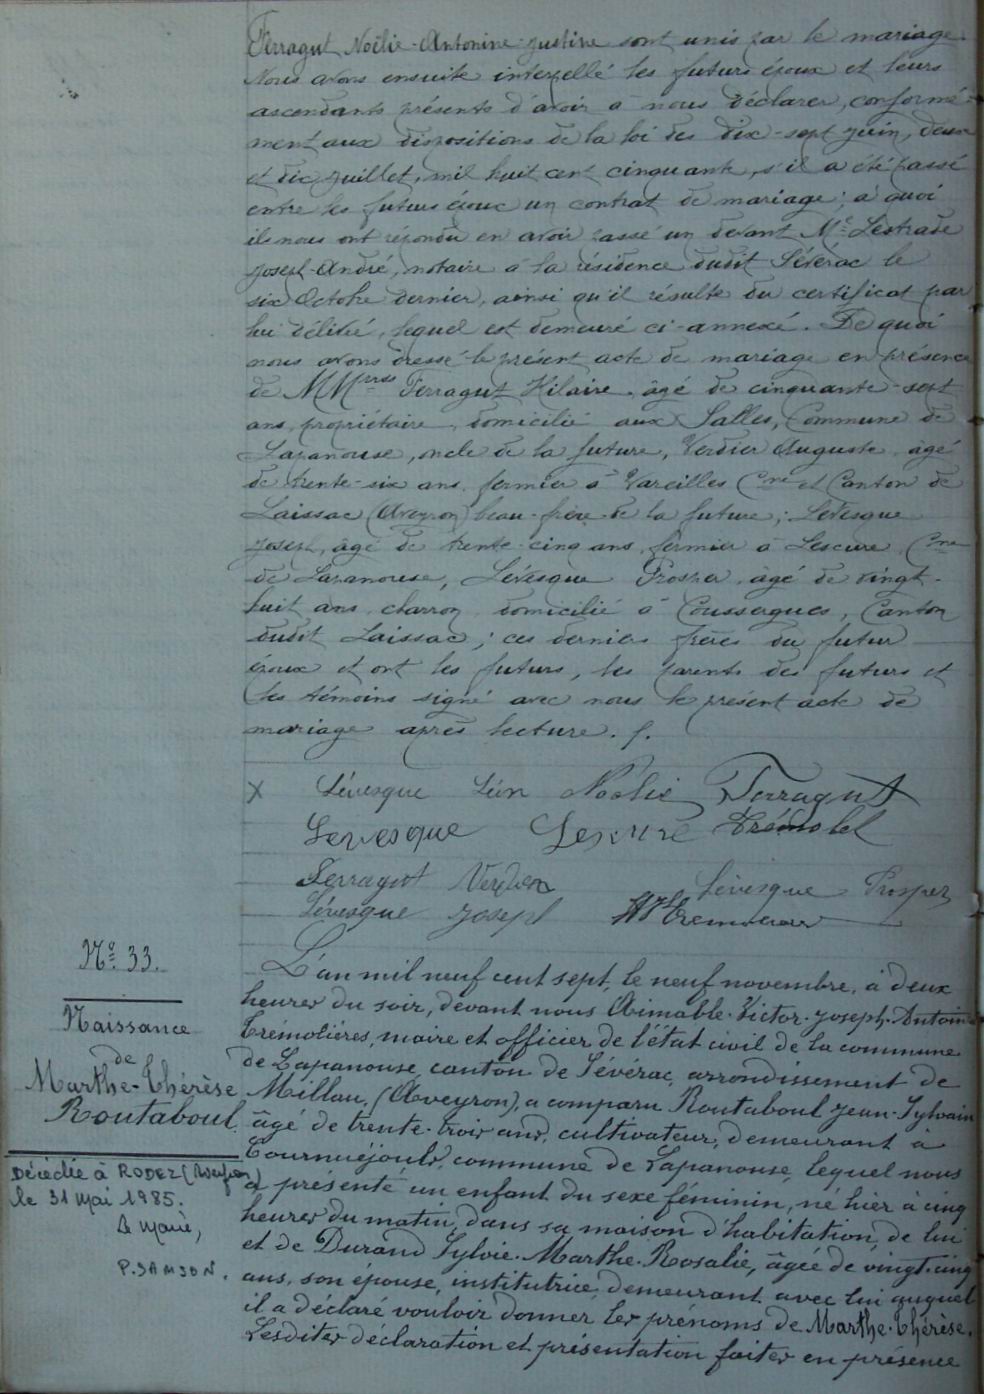 Ferragut Noëlie-Antonine-Justine sont unis par le mariage.
Nous avons ensuite interpellé les futurs époux et leurs
ascendants présents d'avoir à nous déclarer, conformé-
ment aux dispositions de la loi des dix-sept juin, deux
et dix juillet, mil huit cent cinquante, s'il a été passé
entre les futurs époux un contrat de mariage; à quoi
ils nous ont répondu en avoir passé un devant Me Lestrade
Joseph-André, notaire à la résidence dudit Sévérac le
six Octobre dernier, ainsi qu'il résulte du certificat par
lui délivré, lequel est demeuré ci-annexé. De quoi
nous avons dressé le présent acte de mariage en présence
de MM Ferragut Hilaire, âgé de cinquante-sept
ans, propriétaire, domicilié aux Salles, Commune de
Lapanouse, oncle de la future, Verdier Auguste, âgé
de trente-six ans, fermier à Vareilles Cne et Canton de
Laissac (Aveyron) beau-frère de la future; Lévesque
Joseph, âgé de trente-cinq ans, fermier à Lescure, Cne
de Lapanouse, Lévesque Prosper, âgé de vingt-
huit ans, charron, domicilié à Coussergues, Canton
dudit Laissac; ces derniers frères du futur
époux et ont les futurs, les parents des futurs et
les témoins signé avec nous le présent acte de
mariage après lecture. /.
X Lévesque Léon Noélie Ferragut
Levesque
Ferragut Verdier Lévesque Prosper
Lévesque Joseph
No 33.
Naissance
de
Marthe-Thérèse
Routaboul.
Décédée à RODEZ (Aveyron)
le 31 Mai 1985.
Le Maire,
P. SAMSON.
L'an mil neuf cent sept, le neuf novembre, à deux
heures du soir, devant nous Aimable-Victor-Joseph-Antoine
Trémolières, maire et officier de l'état civil de la commune
de Lapanouse, canton de Sévérac, arrondissement de
Millau, (Aveyron), a comparu Routaboul Jean-Sylvain
âgé de trente-trois ans, cultivateur, demeurant à
Cournuéjouls, commune de Lapanouse, lequel nous
a présenté un enfant du sexe féminin, né hier à cinq
heures du matin, dans sa maison d'habitation, de lui
et de Durand Sylvie-Marthe-Rosalie, âgée de vingt-cinq
ans, son épouse, institutrice, demeurant avec lui auquel
il a déclaré vouloir donner les prénoms de Marthe-Thérèse.
Lesdites déclaration et présentation faites en présence